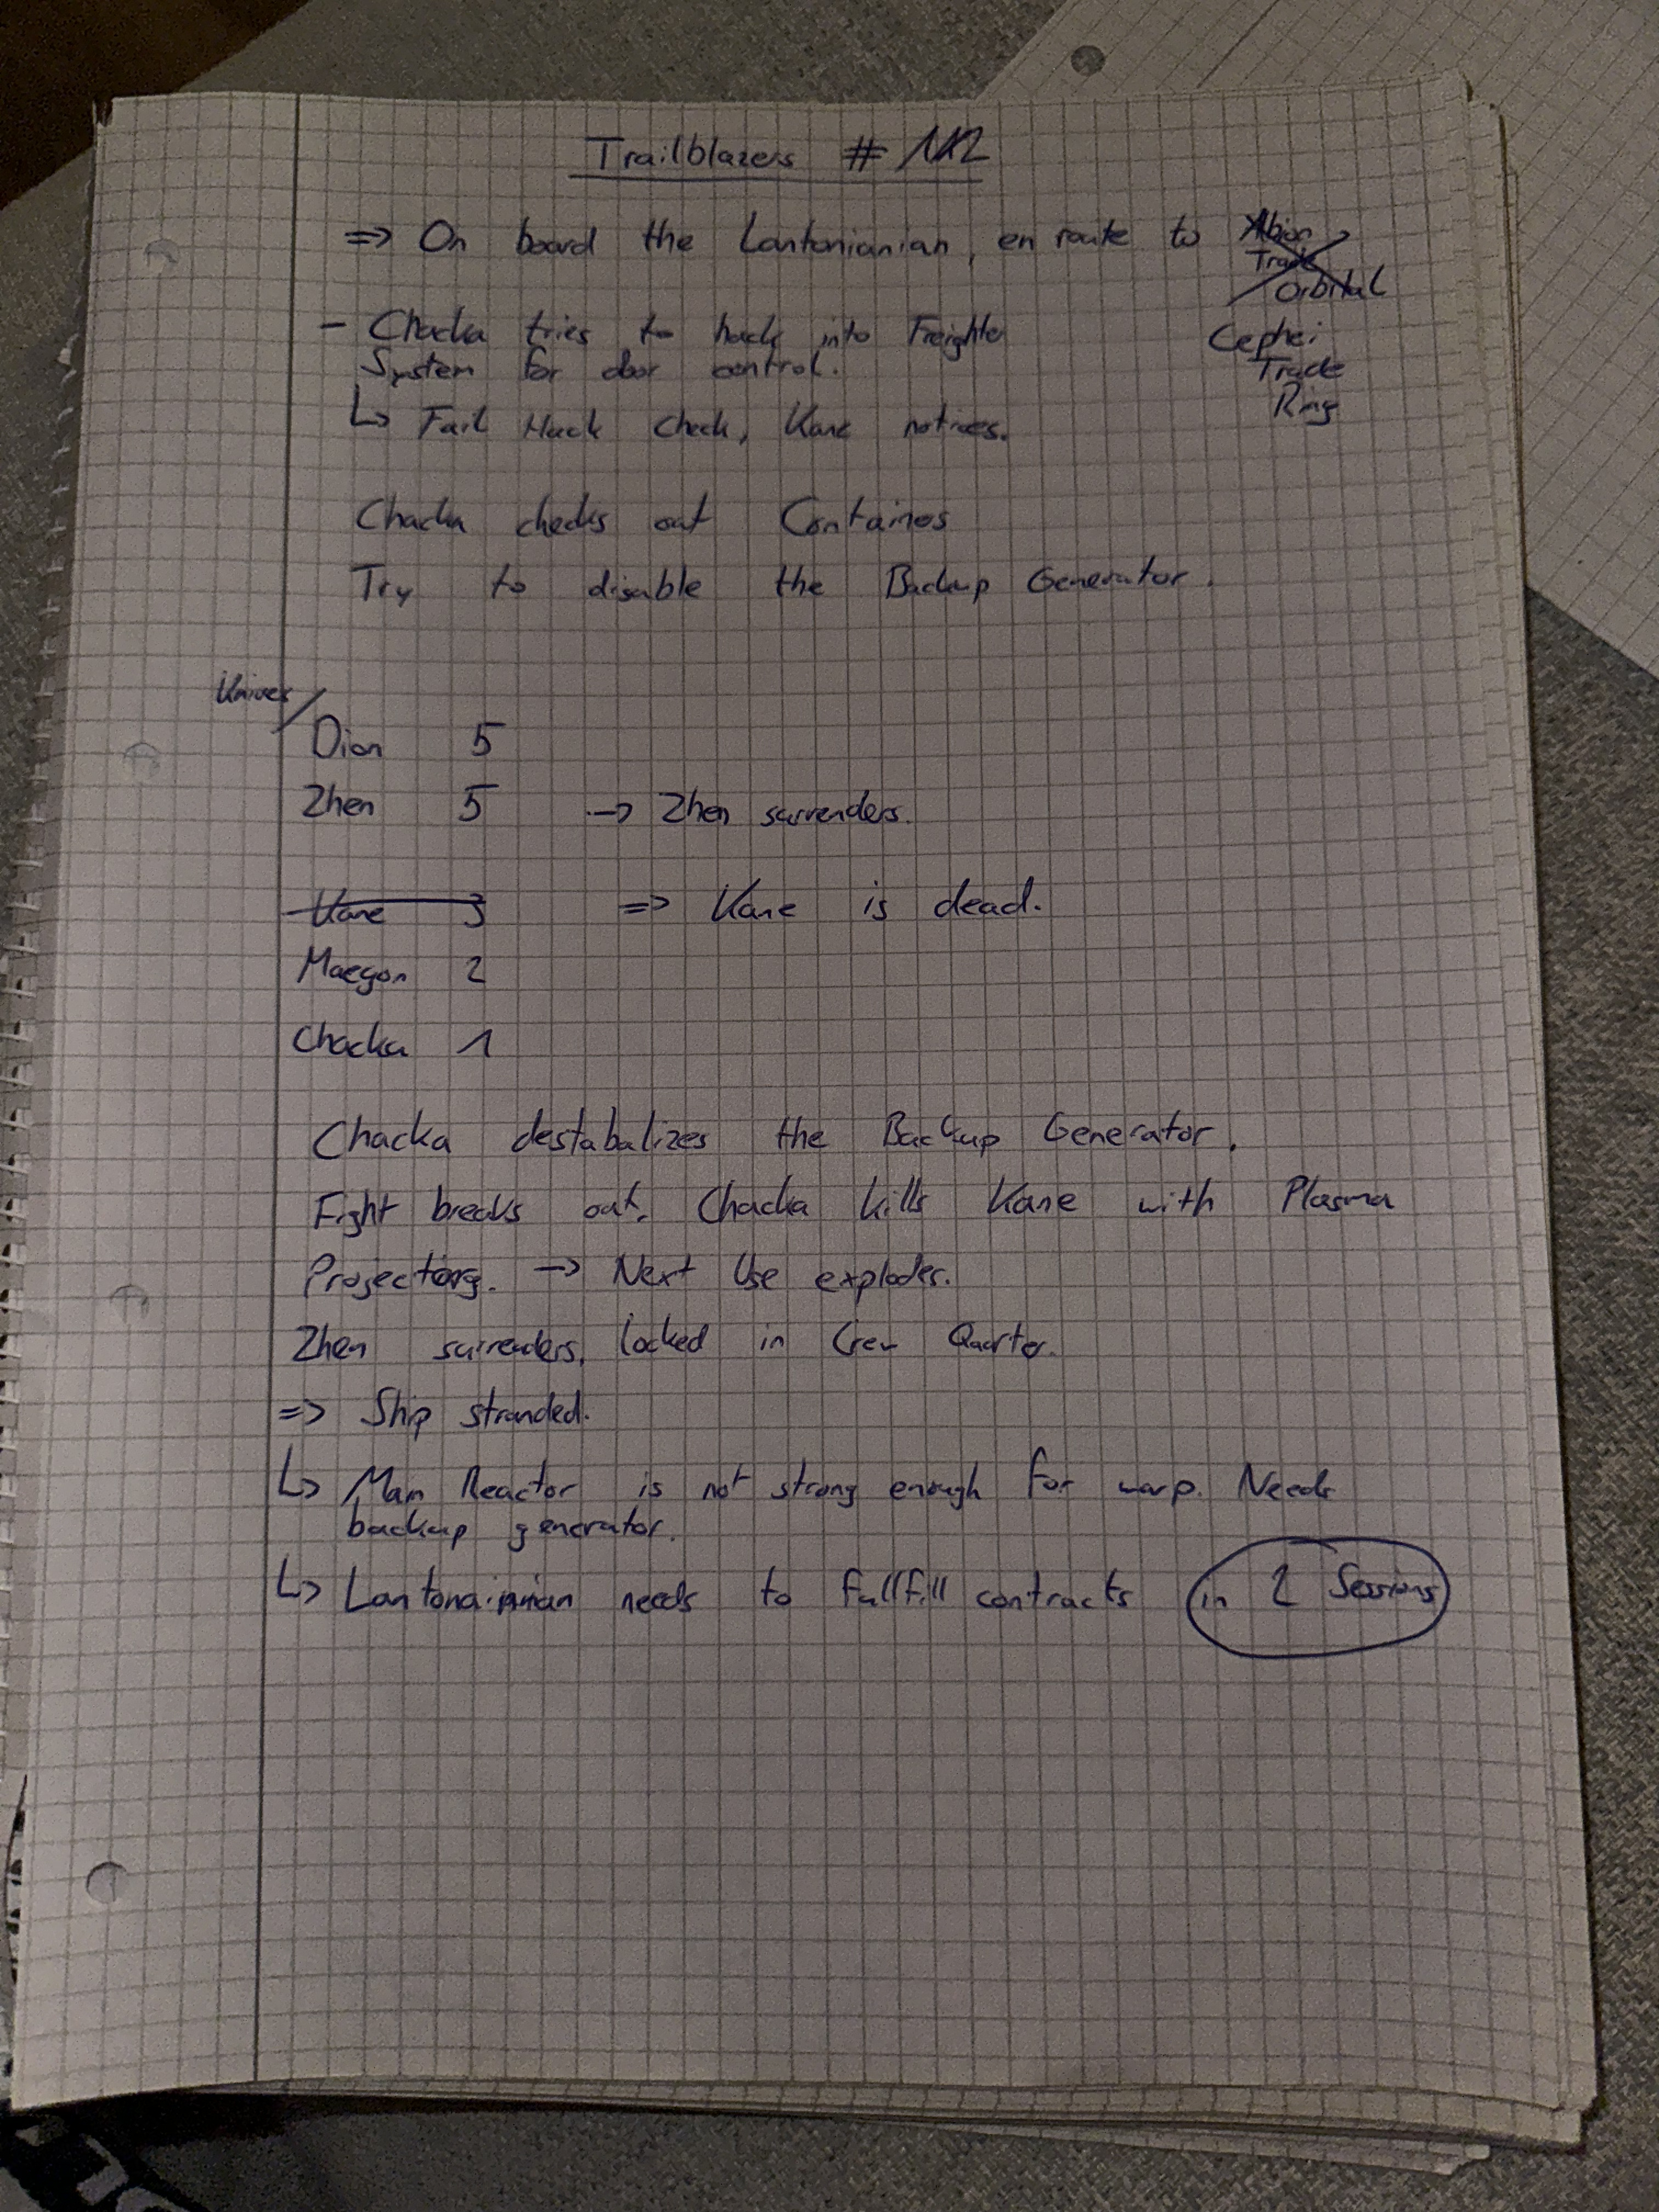 Trailblazers # 12
=> On board the Lantonianian, en route to Albion
Trade
Orbital
Cephei
Trade
Ring
- Chacka tries to hack into Freighter
System for door control.
↳ Fail Hack check, Kane notices.
Chacka checks out Containers
Try to disable the Backup Generator.
Knives /
Dion 5
Zhen 5 -> Zhen surrenders.
Kane 3 => Kane is dead.
Maegon 2
Chacka 1
Chacka destabalizes the Backup Generator.
Fight breaks out. Chacka kills Kane with Plasma
-> Next Use explodes.
Zhen surrenders, locked in Crew Quarter.
=> Ship stranded.
↳ Main Reactor is not strong enough for warp. Needs
backup generator.
↳ needs to fullfill contracts in 2 Sessions